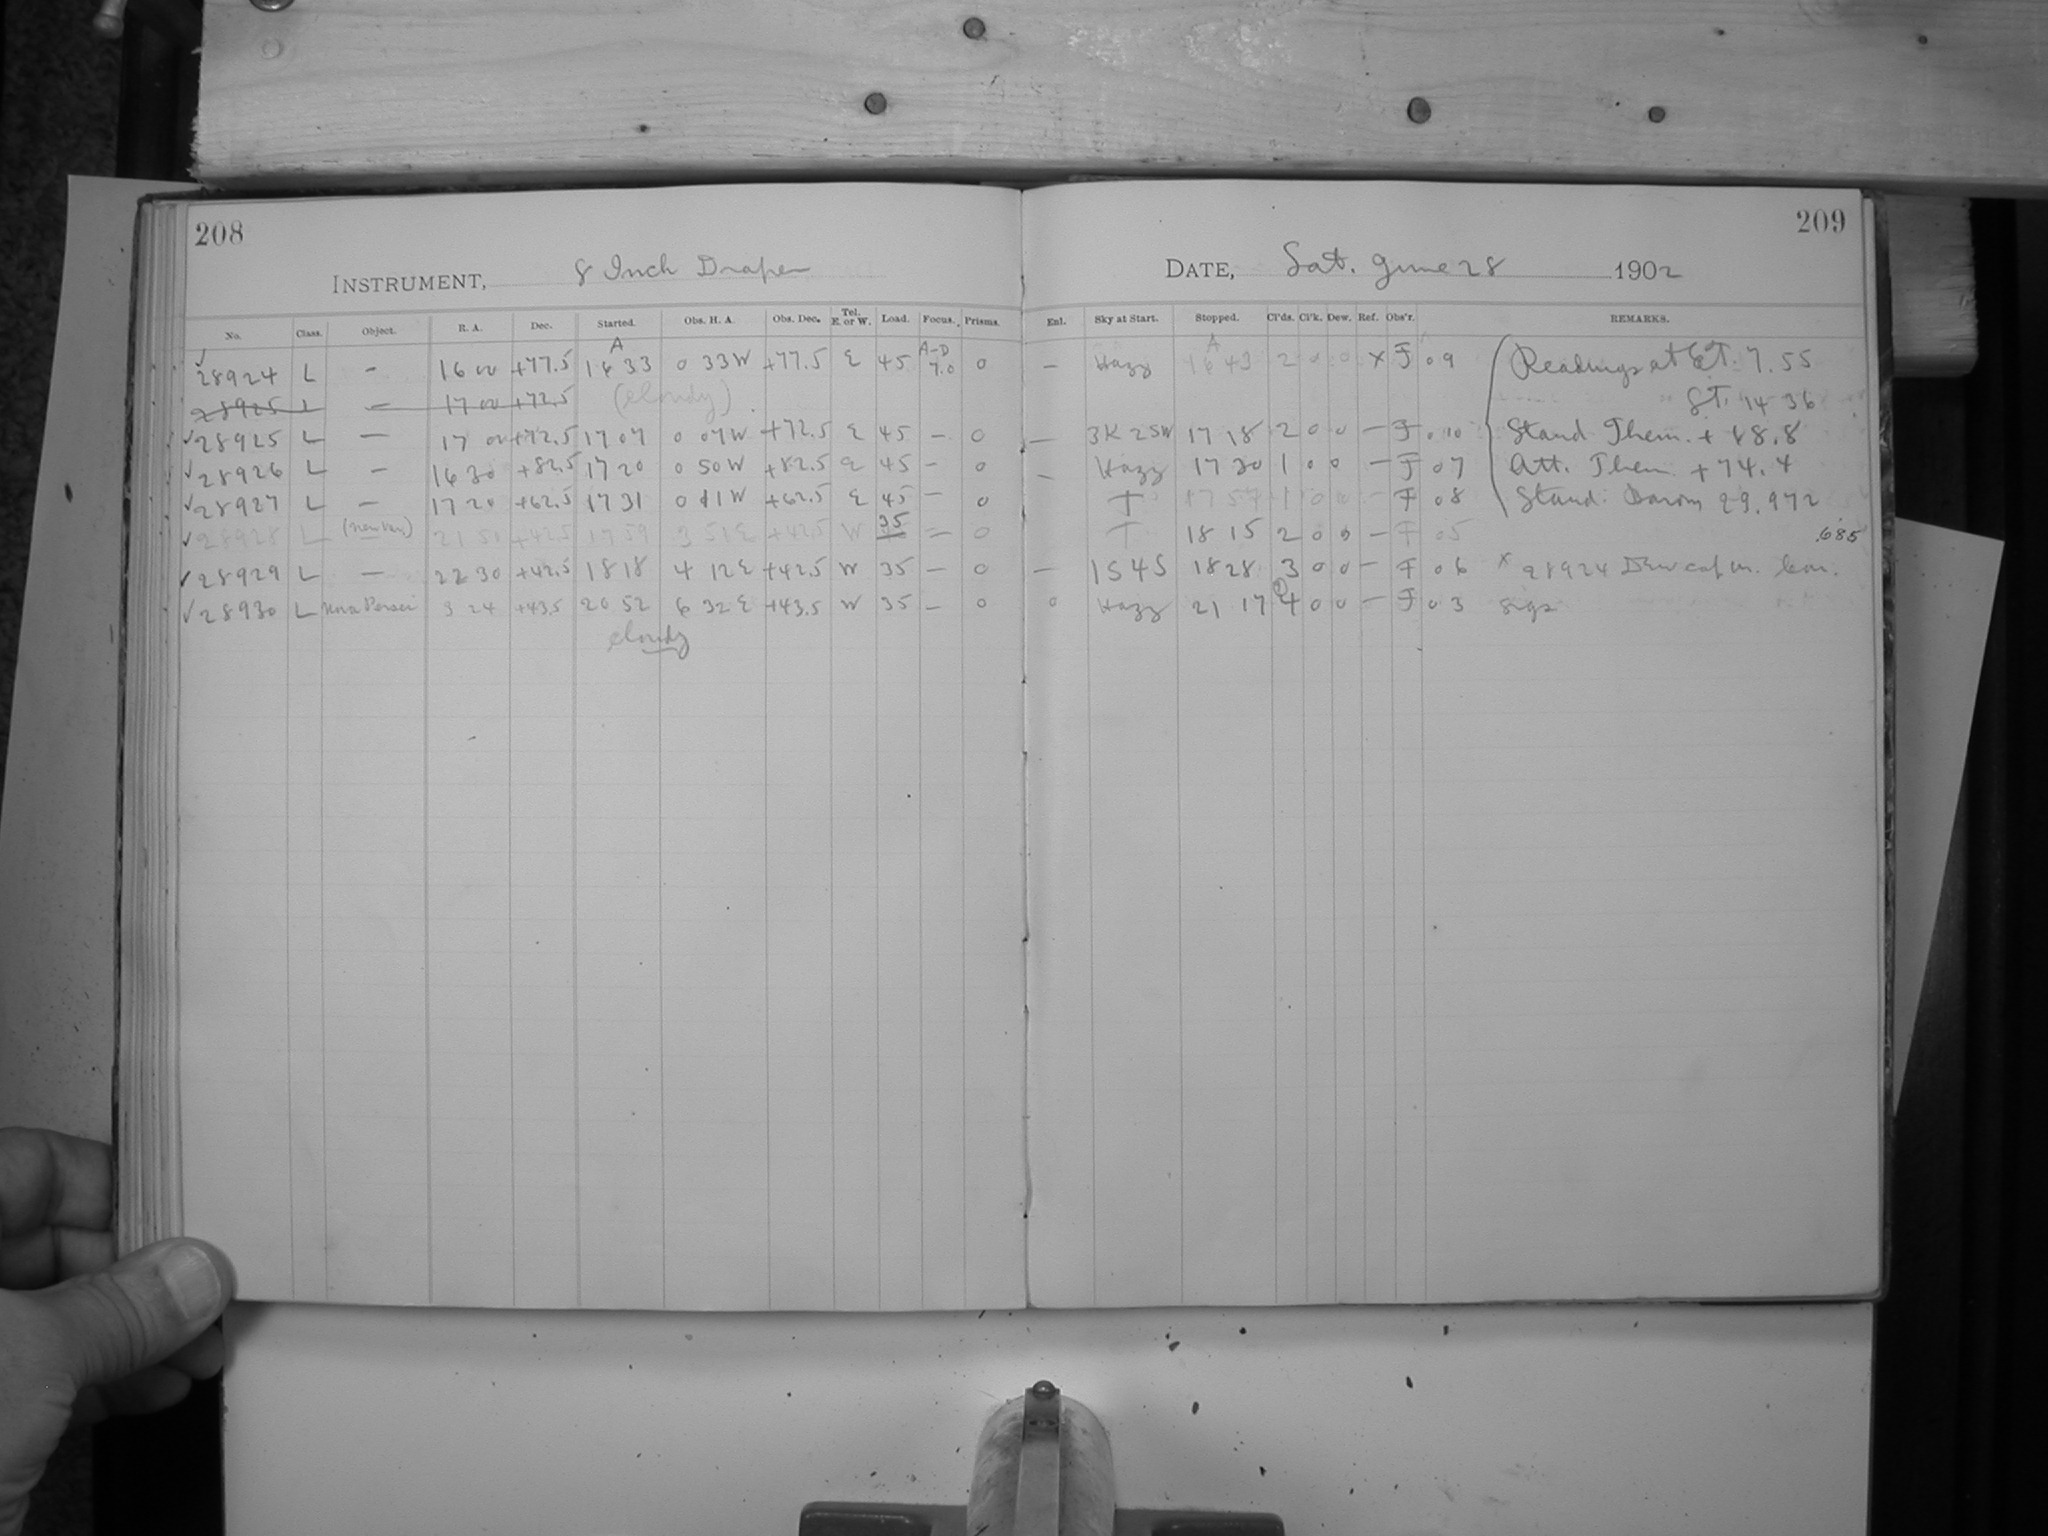 208 209
INSTRUMENT, 8 Inch Draper DATE, Sat. June 28 1902
No. Class. Object. R. A. Dec. Started. Obs. H. A. Obs. Dec. Tel. E. or W. Load. Focus. Prisms. Enl. Sky at Start. Stopped. Cl'ds. Cl'k. Dew. Ref. Obs'r. REMARKS.
A A-D A
✓ 28924 L – 16 00 +77.5 16 33 0 33 W +77.5 E 45 7.0 0 – Hazy 16 43 2 0 0 x F 09 Readings at ET. 7.55
28925 L – 17 00 +72.5 (cloudy) ST. 14 36
✓ 28925 L – 17 00 +72.5 17 07 0 07 W +72.5 E 45 – 0 – 3K 2SW 17 18 2 0 0 – F 010 Stand Them. + 68.8
✓ 28926 L – 16 30 +82.5 17 20 0 50 W +82.5 E 45 – 0 – Hazy 17 30 1 0 0 – F 07 Att. Them. +74.4
✓ 28927 L – 17 20 +62.5 17 31 0 11 W +62.5 E 45 – 0 T 17 54 1 0 0 – F 08 Stand. Barom 29.972
✓ 28928 L 21 50 +42.5 17 59 3 51 E +42.5 W 35 – 0 T 18 15 2 0 0 – F 05 .685
✓ 28929 L – 22 30 +42.5 18 18 4 12 E +42.5 W 35 – 0 – 1S4S 18 28 3 0 0 – F 06 x 28924 Dew cap
✓ 28930 L Nova Persei 3 24 +43.5 20 52 6 32 E +43.5 W 35 – 0 0 Hazy 21 17 4 0 0 – F 03
cloudy